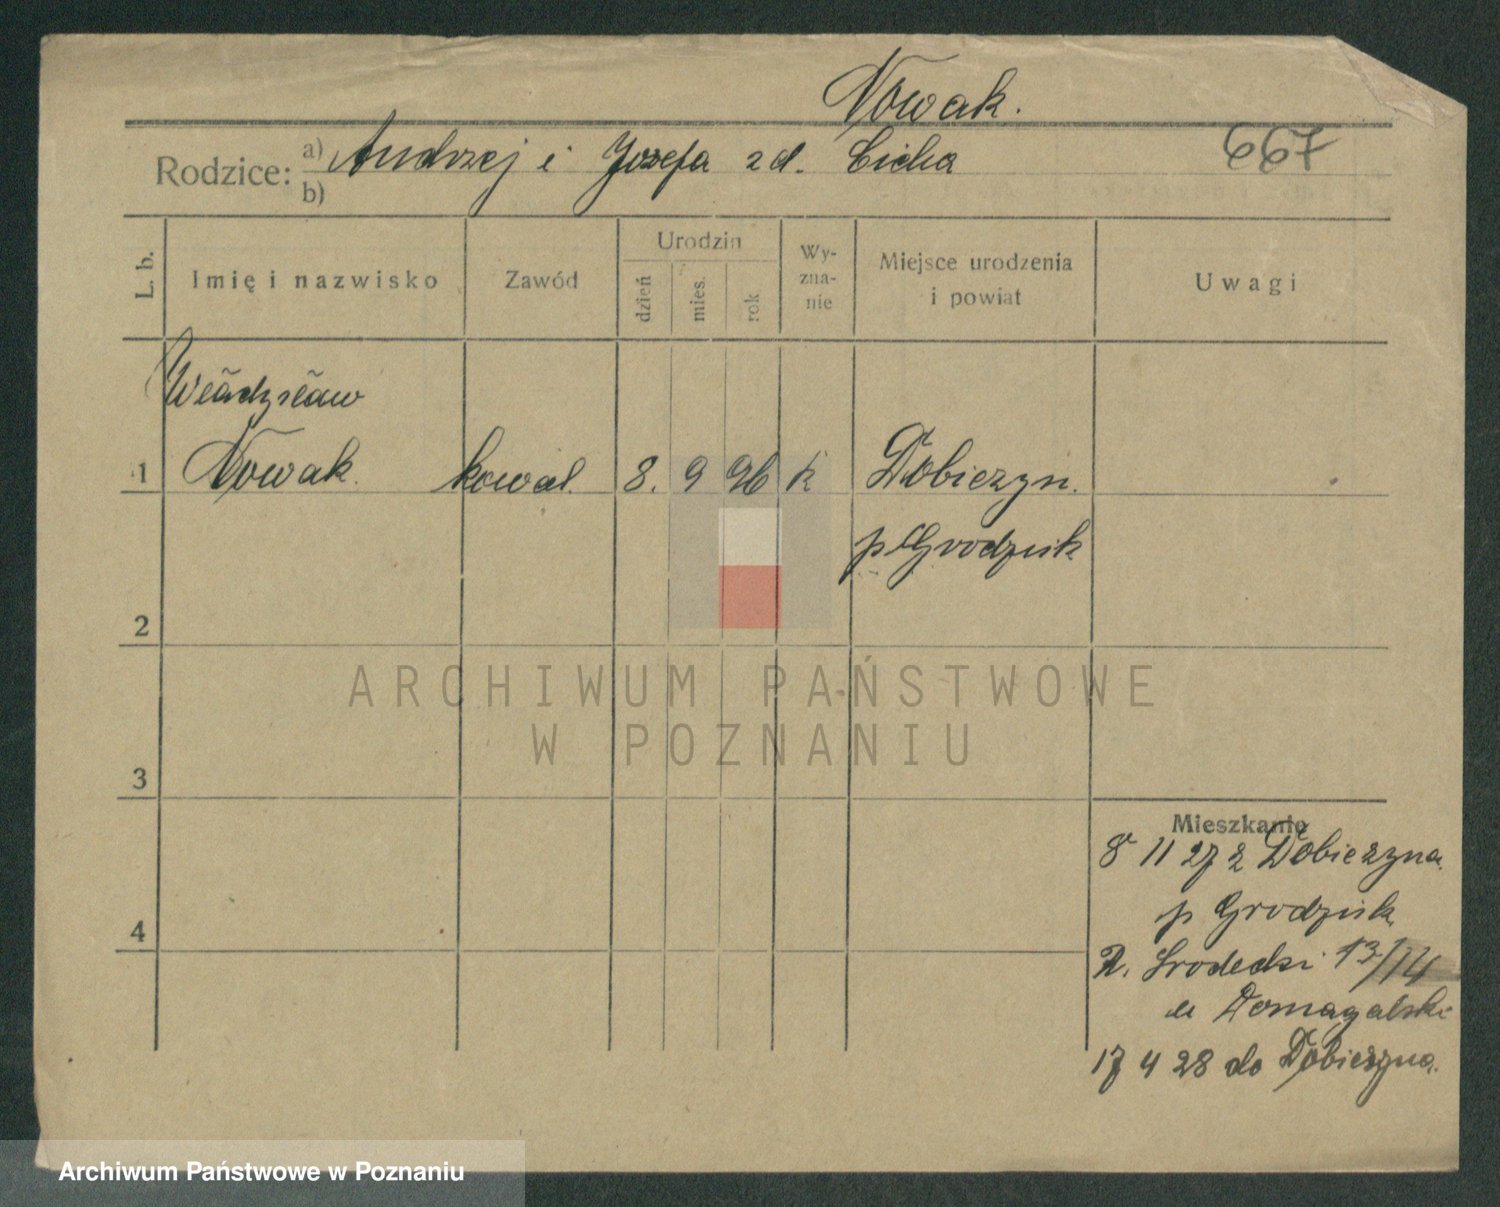 Nowak.
667
Rodzice: a) Andrzej i Jozefa zd. Cicha
b)
L. b. Imię i nazwisko Zawód Urodzin dzień mies. rok Wy-zna-nie Miejsce urodzenia i powiat Uwagi
Władysław
1 Nowak. kowal. 8. 9 96 k Dobieczyn.
p Grodzisk
2
ARCHIWUM PAŃSTWOWE
W POZNANIU
3
Mieszkanie
8 11 27 z Dobiezyna.
p Grodzisk
4
R. Srodecki 13/14
u Domagalski
17 4 28 do Dobiezyna.
Archiwum Państwowe w Poznaniu